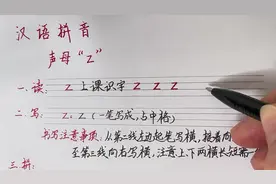 汉语拼音
声母“z”
一、读: z 上课识字 z z z
二、写: z、z(一笔写成,占中格)
书写注意事项: 从第二线左边起笔写横,接着向
至第三线向右写横,注意上、下两横长短需一
三、拼: